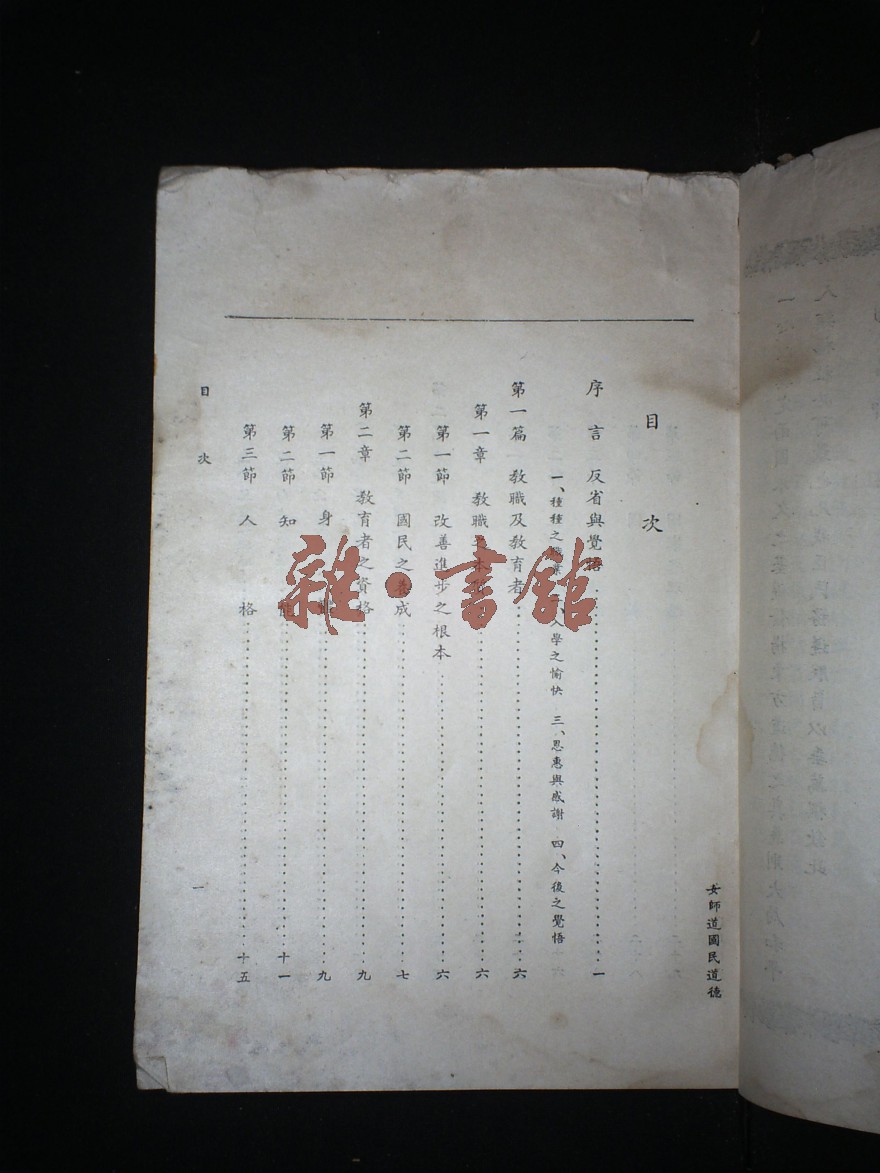 女師道國民道德
目次
序言 反省與覺悟……一
一、種種之 二、入學之愉快 三、恩惠與感謝 四、今後之覺悟
第一篇 教職及教育者……六
第一章 教職之本……六
第一節 改善進步之根本……六
第二節 國民之養成……七
第二章 教育者之資格……九
第一節 身……九
第二節 知能……十一
第三節 人格……十五
目次
一
雜·書館